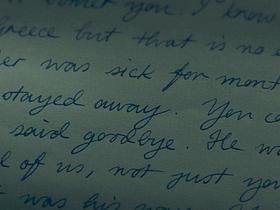 you. I know
Greece but that is no e
was sick for mont
stayed away. You co
said goodbye. He w
of us, not just yo
was his